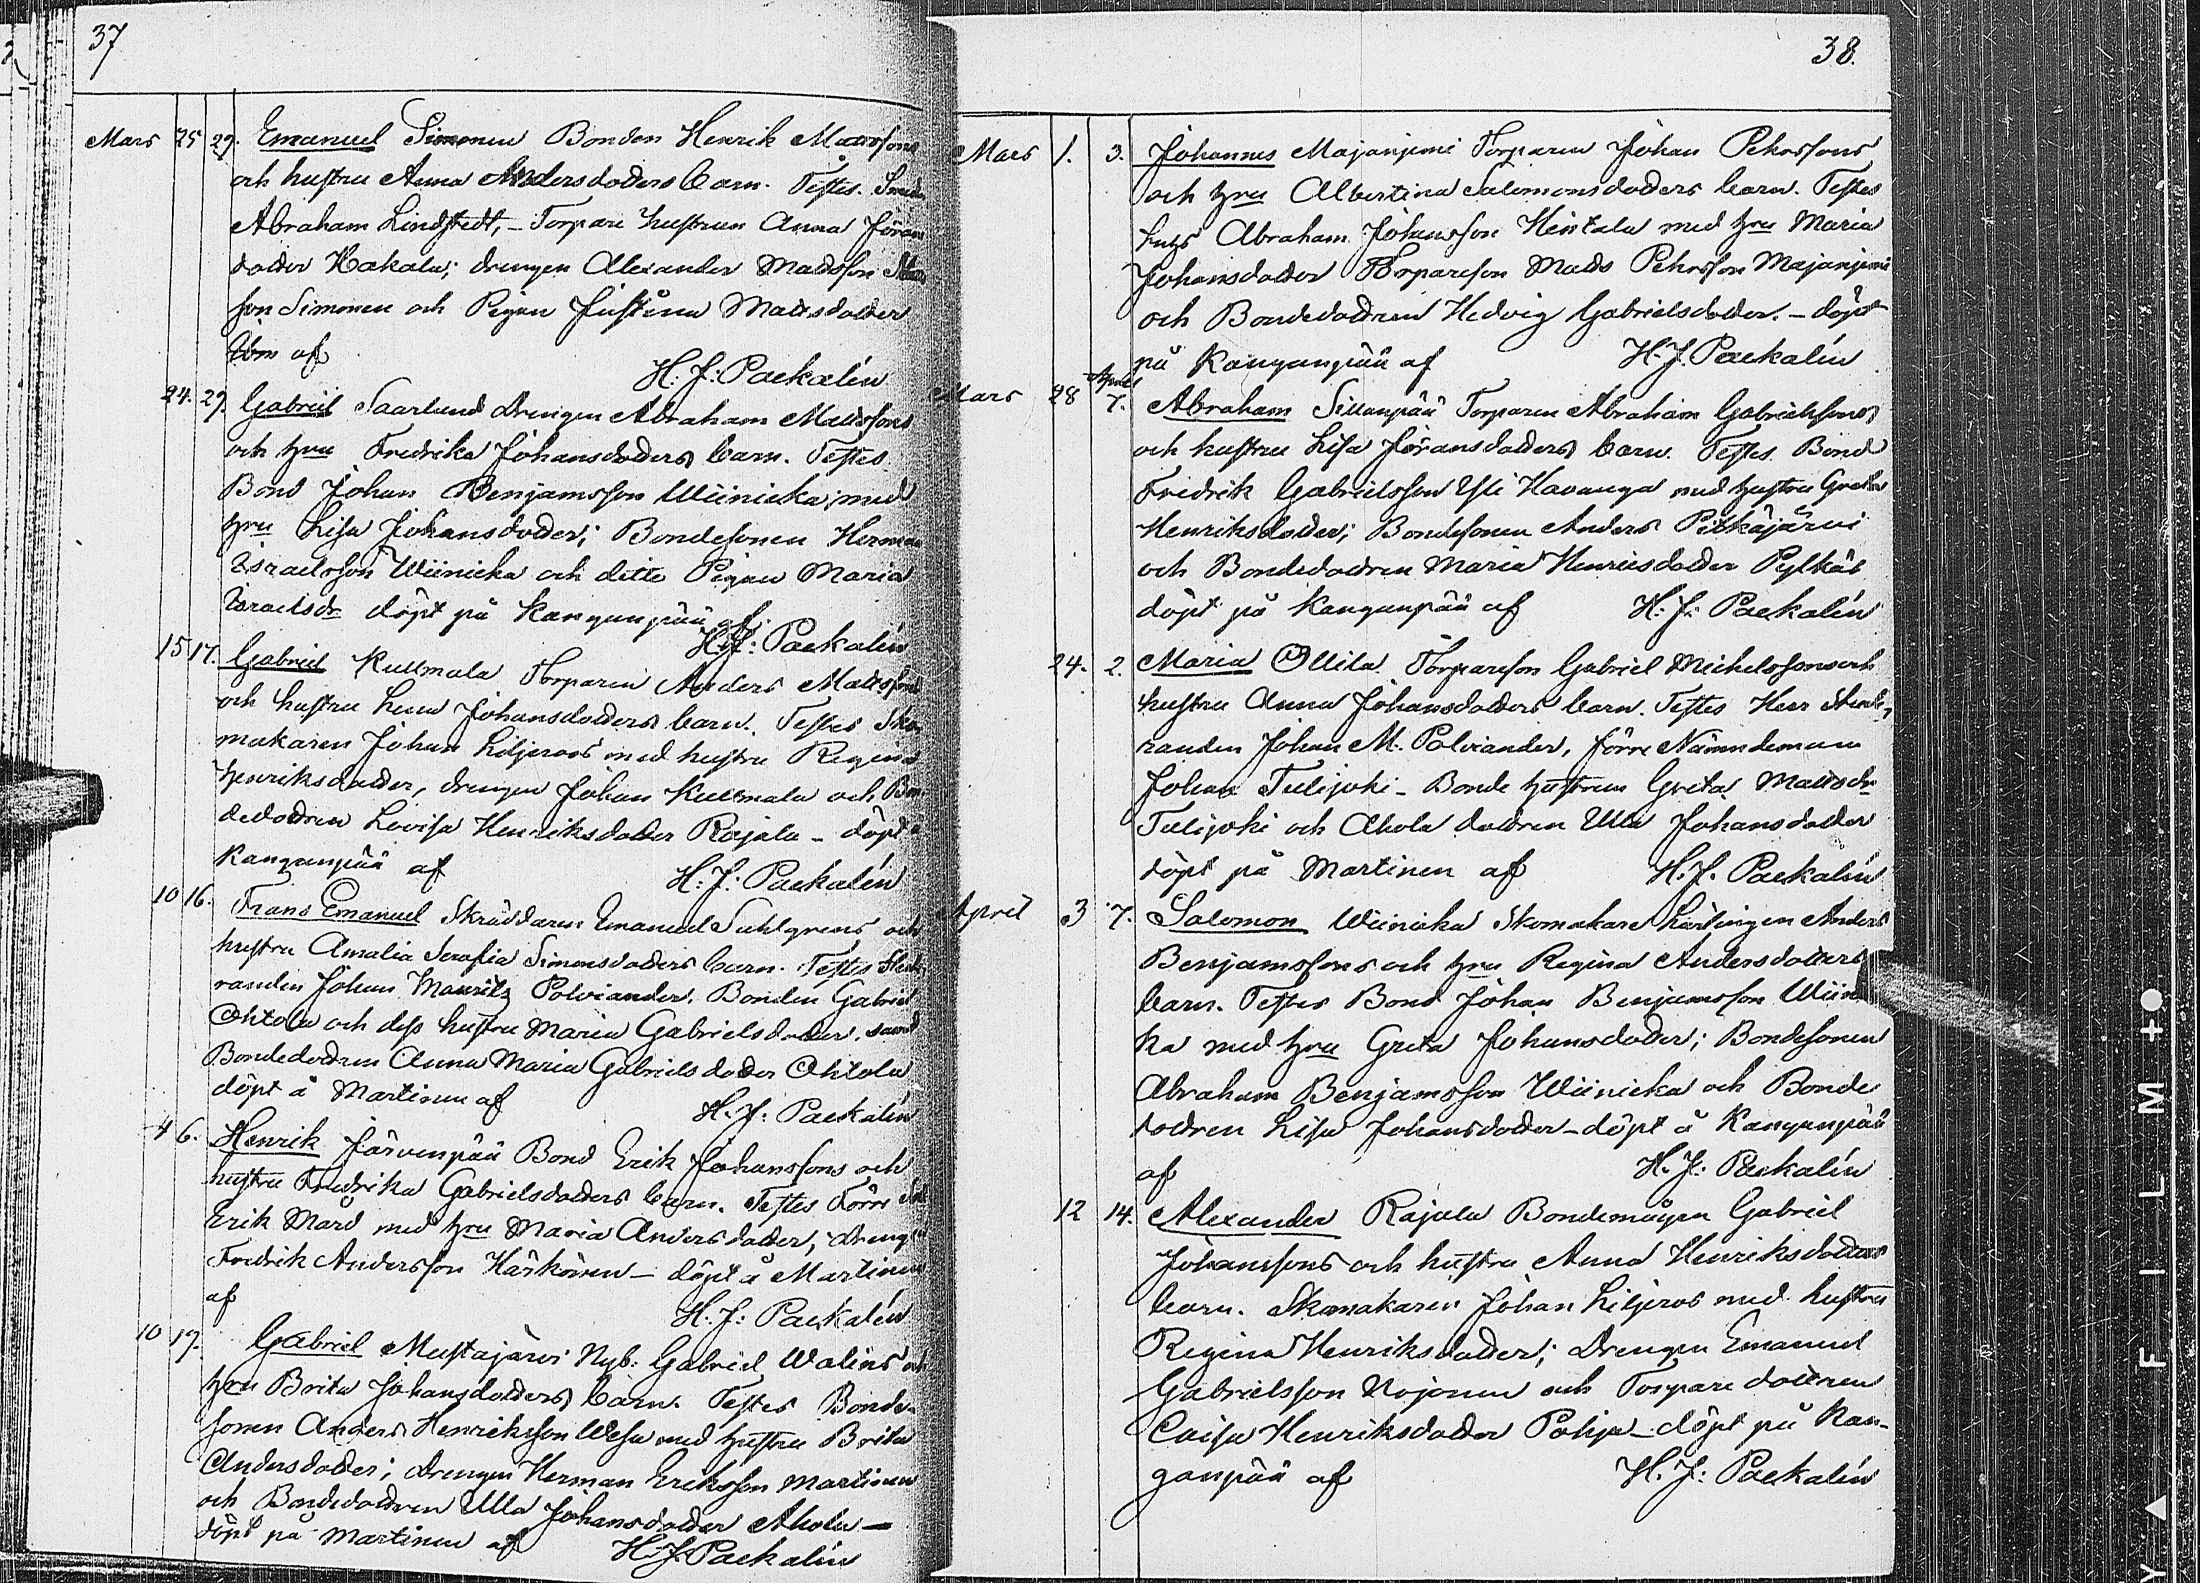 37
Mars 25 29. Emanuel Simonen Bonden Henrik Mattssons
och hustru Anna Andersdotters barn. Testes. Smeden
Abraham Lindstedt, – Torpare hustrun Anna Jörans
dotter Hakala; drengen Alexander Mattsson
son Simonen och Pigan Justina Mattsdotter
af
H. J: Paekalén
24. 29. Gabriel Saarlund Drengen Abraham Mattssons
och hru Fredrika Johansdotters barn. Testes.
Bond Johan Benjamsson Wiinicka; med
hru Lisa Johansdotter; Bondesonen Herman
Israelsson Wiinicka och ditto Pigan Maria
Israelsdr döpt på Kanganpää af
H. J: Paekalén
15 17. Gabriel Kullmala Torparen Anders Mattssons
och hustru Lena Johansdotters barn. Testes Sko-
makaren Johan Liljeroos med hustru Regina
Henriksdotter, drengen Johan Kullmala och Bon-
dedottren Lovisa Henriksdotter Rajala – döpt å
Kanganpää af
H. J: Paekalén
10 16. Frans Emanuel Skräddaren Emanuel Sahlgrens och
hustru Amalia Serafia Simonsdotters barn. Testes Stude-
randen Johan Mauritz Polviander. Bonden Gabriel
Ohtola och dess hustru Maria Gabrielsdotter, samt
Bondedottren Anna Maria Gabrielsdotter Ohtola
döpt å Martinen af
H. J: Paekalén
4 6. Henrik Järvenpää Bond Erik Johanssons och
hustru Fredrika Gabrielsdotters barn. Testes Förre
Erik Mård med hru Maria Andersdotter, Drengen
Fredrik Andersson Härkönen – döpt å Martinen
af
H. J: Paekalén
10 19. Gabriel Mustajärvi Nyb: Gabriel Walins och
hru Brita Johansdotters barn. Testes Bonde-
sonen Anders Henriksson Wesa med hustru Brita
Andersdotter; Drengen Herman Eriksson Martinen
och Bondedottren Ulla Johansdotter Ahola –
döpt på Martinen af
H. J: Paekalén
38.
Mars 1. 3. Johannes Majaniemi Torparen Johan Pehrssons
och hru Albertina Salomonsdotters barn. Testes
Abraham Johansson Hintala med hru Maria
Johansdotter Torpareson Mats Pehrsson Majaniemi
och Bondedottren Hedvig Gabrielsdotter. – döpt
på Kanganpää af H. J. Paekalén
Mars 28 April 7. Abraham Sillanpää Torparen Abraham Gabrielssons
och hustru Lisa Göransdotters barn. Testes. Bond
Fredrik Gabrielsson Yli Havanga med hustru Greta
Henriksdotter; Bondesonen Anders Pitkäjärvi
och Bondedottren Maria Henriksdotter Pylkäs
döpt på Kanganpää af H: J: Paekalén
24. 2. Maria Ollila Torpareson Gabriel Michelssons och
hustru Anna Johansdotters barn. Testes Herr Stude-
randen Johan M. Polviander, förre Nämndeman
Johan Tulijoki – Bonde hustrun Greta Mattsdr
Tulijoki och Ahola dottren Ulla Johansdotter
döpt på Martinen af H. J. Paekalén
April 3 7. Salomon Wiinicka Skomakare Lärlingen Anders
Benjamssons och hru Regina Andersdotters
barn. Testes Bond Johan Benjamsson Wiinic
ka med hru Greta Johansdotter; Bondesonen
Abraham Benjamsson Wiinicka och Bonde
dottren Lisa Johansdotter – döpt å Kanganpää
af H. J: Paekalén
12 14. Alexander Rajala Bondemågen Gabriel
Johanssons och hustru Anna Henriksdotters
barn. Skomakaren Johan Liljeros med hustru
Regina Henriksdotter; Drengen Emanuel
Gabrielsson Nojonen och Torpare dottren
Caisa Henriksdotter Pohja – döpt på Kan-
ganpää af H. J: Paekalén
FILM